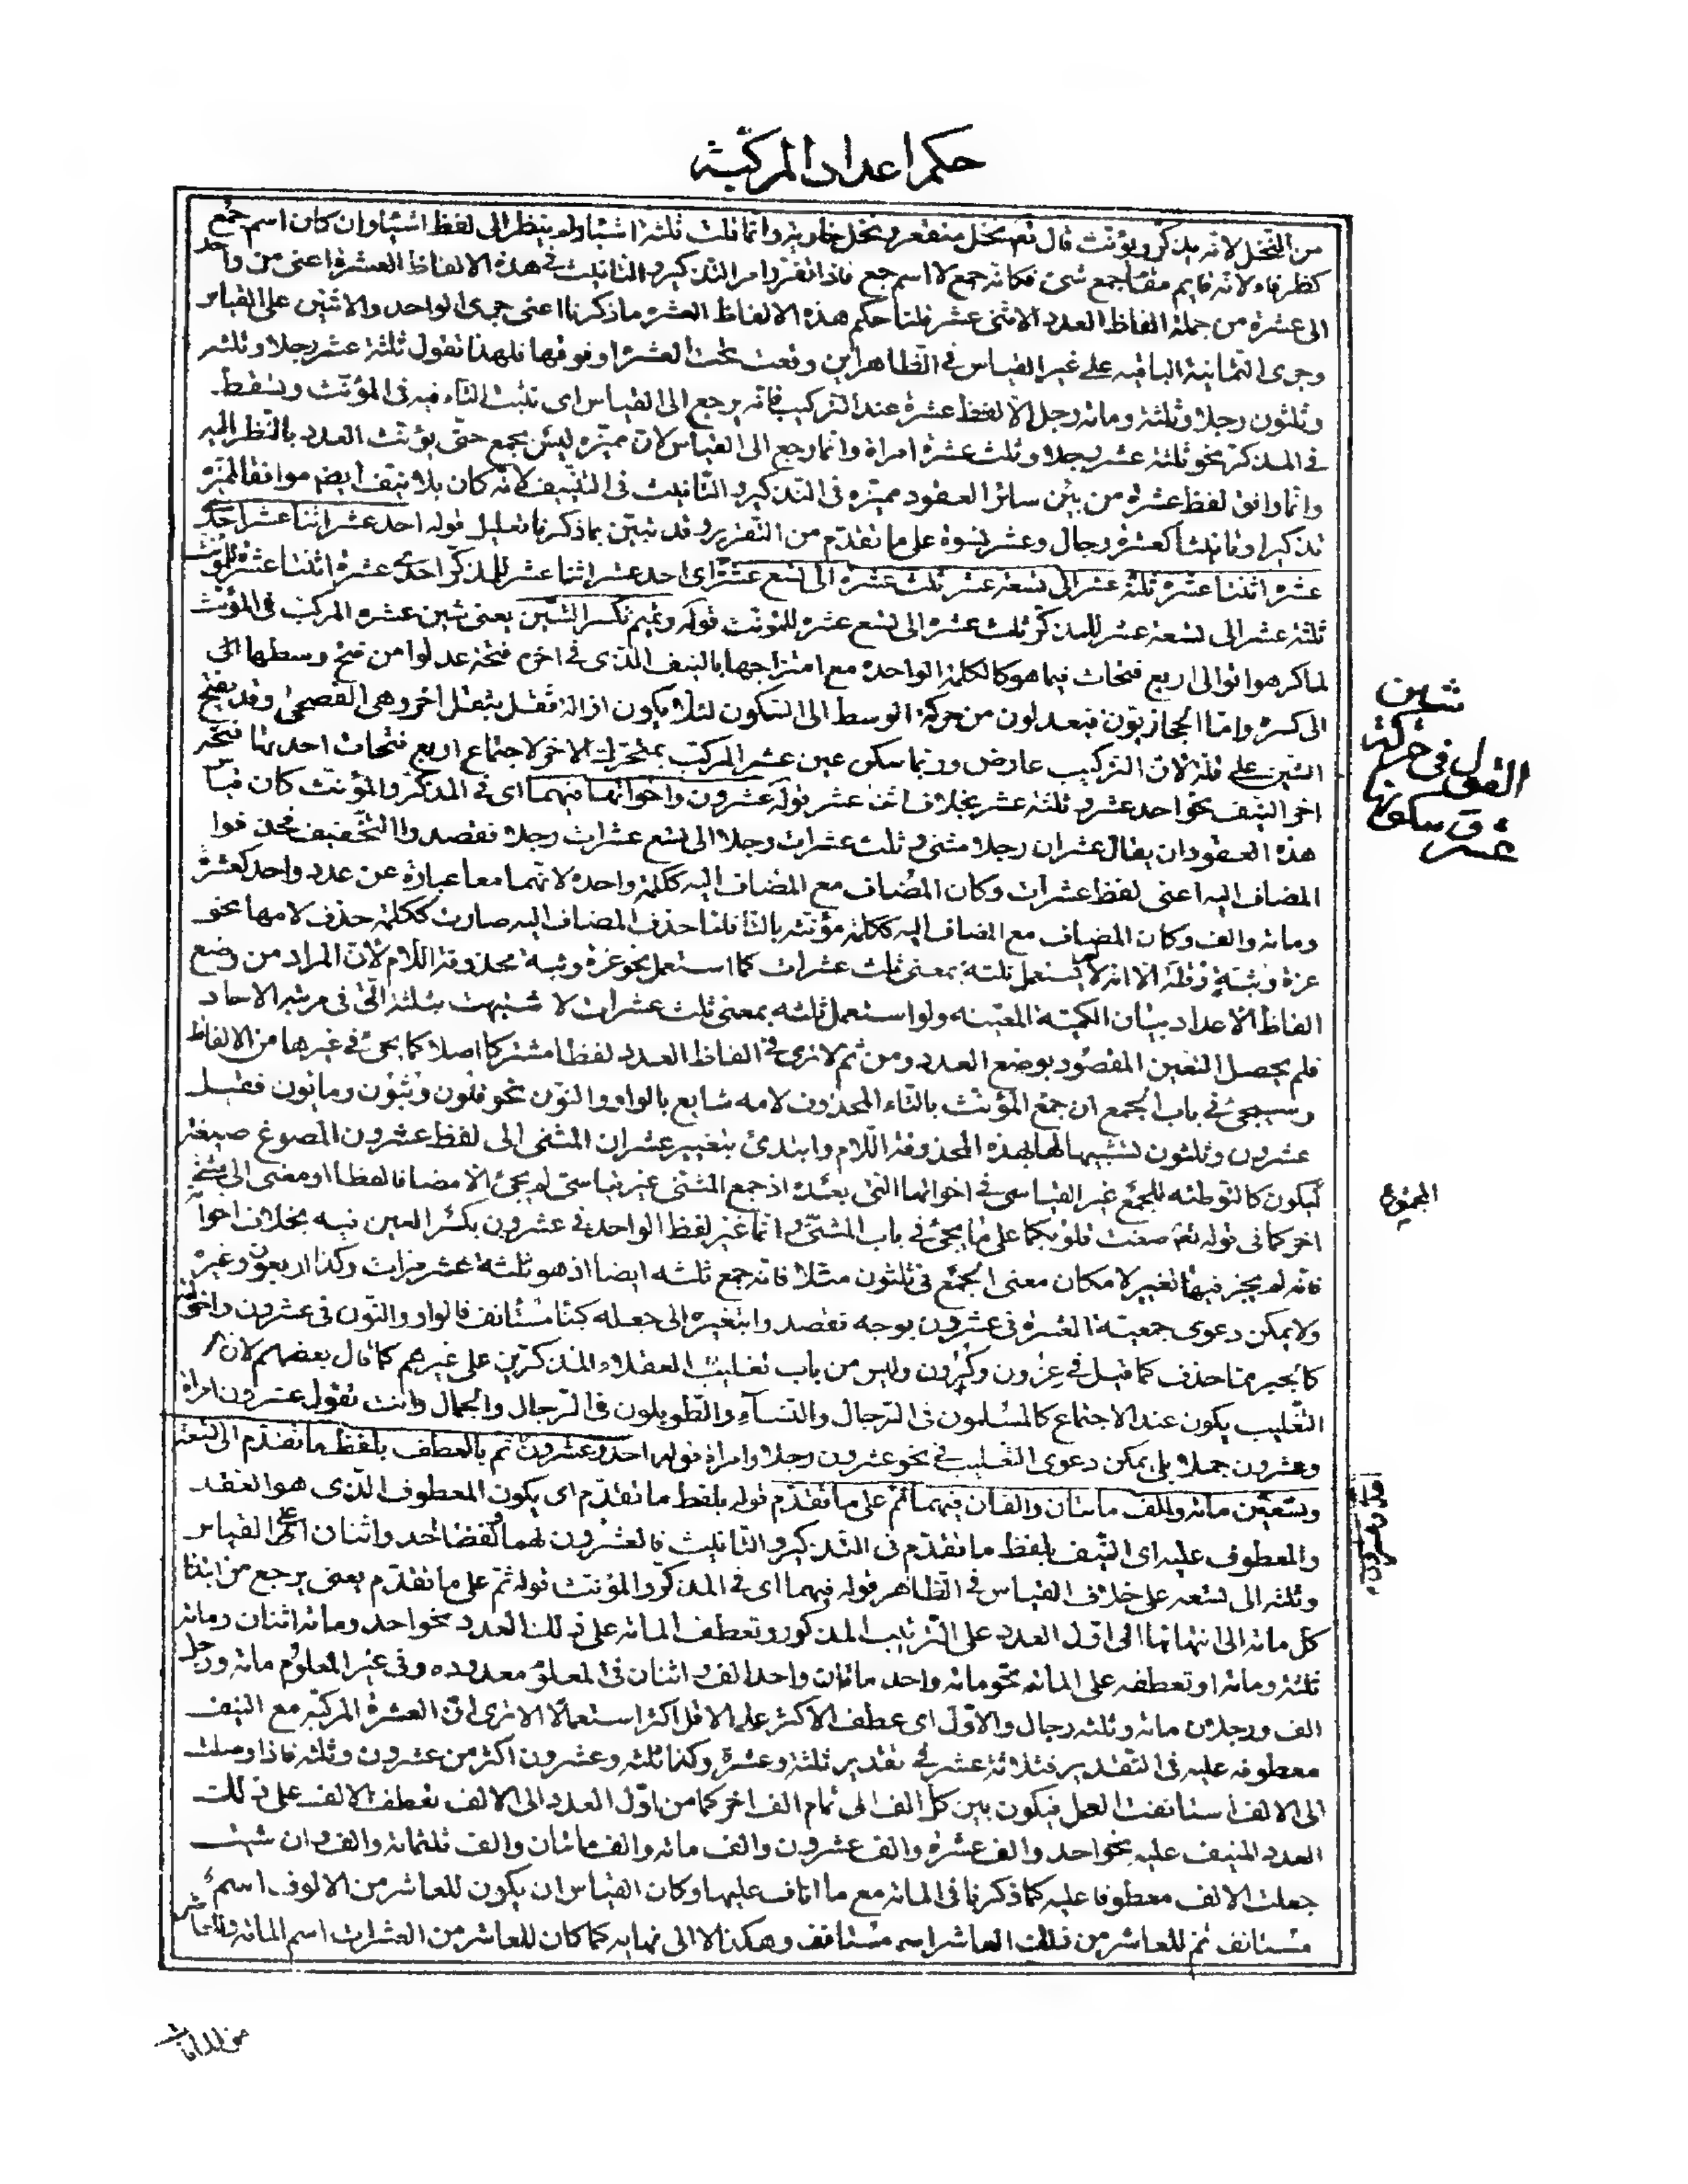 حكم اعداد المركبة
من النخل لانه يذكر ويؤنث قال تعم نخل منقعر ونخل خاوية وانما قلت ثلثة اشياء ولم ينظر الى لفظ اشياء وان كان اسم جمع
كطرفاء لانه قايم مقام جمع شئ فكانه جمع لا اسم جمع فاذا تقرر امر التذكير والتانيث فى هذه الالفاظ العشرة اعنى من واحد
الى عشرة من جملة الفاظ العدد الاثنى عشر قلنا حكم هذه الالفاظ العشره ما ذكرنا اعنى جرى الواحد والاثنين على القياس
وجرى الثمانية الباقيه على غير القياس فى الظاهر اين وقعت تحت العشرة او فوقها فلهذا تقول ثلثة عشر رجلا وثلثه
وثلثون رجلا وثلثة ومائه رجل الا لفظ عشرة عند التركيب فانه يرجع الى القياس اى تثبت التاء فيه فى المؤنث ويسقط
فى المذكر نحو ثلثة عشر رجلا وثلث عشرة امراة وانما رجع الى القياس لان مميزه ليس بجمع حتى يؤنث العدد بالنظر اليه
وانما وافق لفظ عشرة من بين سائر العقود مميزه فى التذكير والتانيث فى التنييف لانه كان بلا نيف ايضم موافقا لمميزه
تذكيرا وتانيثا كعشرة رجال وعشر نسوة على ما تقدم من التقرير وقد تبين بما ذكرنا تعليل قوله احد عشر اثنا عشر احدى
عشرة اثنتا عشرة ثلثة عشر الى تسعة عشر ثلث عشرة الى تسع عشرة اى احد عشر اثنا عشر للمذكر احدى عشرة اثنتا عشرة للمؤنث
ثلثة عشر الى تسعة عشر للمذكر ثلث عشره الى تسع عشره للمؤنث قوله وتميم تكسر الشين يعنى شين عشره المركب فى المؤنث
لما كرهوا توالى اربع فتحات فيما هو كالكلمة الواحده مع امتزاجها بالنيف الذى فى اخره فتحة عدلوا من فتح وسطها الى
الى كسره واما الحجازيون فيعدلون من حركة الوسط الى السكون لئلا يكون ازالة ثقل بثقل اخر وهى الفصحى وقد يفتح
الشين على قلة لان التركيب عارض وربما سكن عين عشر المركب بمتحرك الاخر لاجتماع اربع فتحات احديها فتحة
اخر النيف نحو احد عشر وثلثة عشر بخلاف اثنا عشر قوله عشرون واخواتها فيهما اى فى المذكر والمؤنث كان قياس
هذه العقود ان يقال عشران رجلا مثنى وثلث عشرات رجلا الى تسع عشرات رجلا فقصدوا التخفيف فحذفوا
المضاف اليه اعنى لفظ عشرات وكان المضاف مع المضاف اليه ككلمة واحده لانهما معا عبارة عن عدد واحد كعشرة
ومائه والف وكان المضاف مع المضاف اليه ككلمة مؤنثه بالتا فلما حذف المضاف اليه صارت ككلمة حذف لامها نحو
عزة وثبة وقلة الا انه لا يستعمل ثلثة بمعنى ثلث عشرات كما استعمل نحو عزة وثبة محذوفة اللام لان المراد من وضع
الفاظ الاعداد بيان الكمية المعينه ولو استعمل ثلثه بمعنى ثلث عشرات لاشتبهت بثلثة التى فى مرتبه الاحاد
فلم يحصل التعين المقصود بوضع العدد ومن ثم لا ترى فى الفاظ العدد لفظا مشتركا اصلا كما يجئ فى غيرها من الالفاظ
وسيجئ فى باب الجمع ان جمع المؤنث بالتاء المحذوف لامه شايع بالواو والنون نحو قلون وثبون ومائون فقيل
عشرون وثلثون تشبيها لها بهذه المحذوفة اللام وابتدئ بتغيير عشران المثنى الى لفظ عشرون المصوغ صيغة
ليكون كالتوطئه للجمع غير القياسى فى اخواتها التى بعده اذ جمع المثنى غير قياسى لم يجئ الا مضافا لفظا او معنى الى مثنى
اخر كما فى قوله تعم صغت قلوبكما على ما يجئ فى باب المثنى وانما غير لفظ الواحد فى عشرون بكسر العين فيه بخلاف اخواته
فانه لم يجز فيها تغيير لامكان معنى الجمع فى ثلثون مثلا فانه جمع ثلثه ايضا اذ هو ثلثة عشر مرات وكذا اربعون وغيره
ولا يمكن دعوى جمعية العشرة فى عشرون بوجه فقصدوا بتغيره الى جعله كبناء مستانف فالواو والنون فى عشرون واخواته
كالجبر مما حذف كما قيل فى عزون وكرون وليس من باب تغليب العقلاء المذكرين على غيرهم كما قال بعضهم لان
التغليب يكون عند الاجتماع كالمسلمون فى الرجال والنساء والطويلون فى الرجال والجمال وانت تقول عشرون امراة
وعشرون جملا بلى يمكن دعوى التغليب فى نحو عشرون رجلا وامراة قوله احد وعشرون ثم بالعطف بلفظ ما تقدم الى تسعة
وتسعين مائه والف مائتان والفان فيهما ثم على ما تقدم قوله بلفظ ما تقدم اى يكون المعطوف الذى هو العقد
والمعطوف عليه اى النيف بلفظ ما تقدم فى التذكير والتانيث فالعشرون لهما ولفظ احد واثنان على القياس
وثلثه الى تسعه على خلاف القياس فى الظاهر قوله فيهما اى فى المذكر والمؤنث قوله ثم على ما تقدم يعنى يرجع من ابتدا
كل مائه الى انتهائها الى اول العدد على الترتيب المذكور وتعطف المائه على ذلك العدد نحو احد ومائه اثنان ومائه
ثلثه ومائه او تعطفه على المائه نحو مائه واحد مائتان واحد الف واثنان فى المعلوم معدوده وفى غير المعلوم مائه ورجل
الف ورجلان مائه وثلثه رجال والاول اى عطف الاكثر على الاقل اكثر استعمالا الا ترى ان العشرة المركبه مع النيف
معطوفه عليه فى التقدير فثلاثة عشر فى تقدير ثلثة وعشرة وكذا ثلثه وعشرون اكثر من عشرون وثلثه فاذا وصلت
الى الالف استانفت العمل فيكون بين كل الف الى تمام الف اخر كما من اول العدد الى الالف تعطف الالف على ذلك
العدد المنيف عليه نحو احد والف عشرة والف عشرون والف مائه والف مائتان والف ثلثمائه والف وان شئت
جعلت الالف معطوفا عليه كما ذكرنا فى المائه مع ما اناف عليها وكان القياس ان يكون للعاشر من الالوف اسم
مستانف ثم للعاشر من ذلك العاشر اسم مستانف وهكذا لا الى نهايه كما كان للعاشر من العشرات اسم المائه وللعاشر
شين
القول فى حركة
عشرة وسكونها